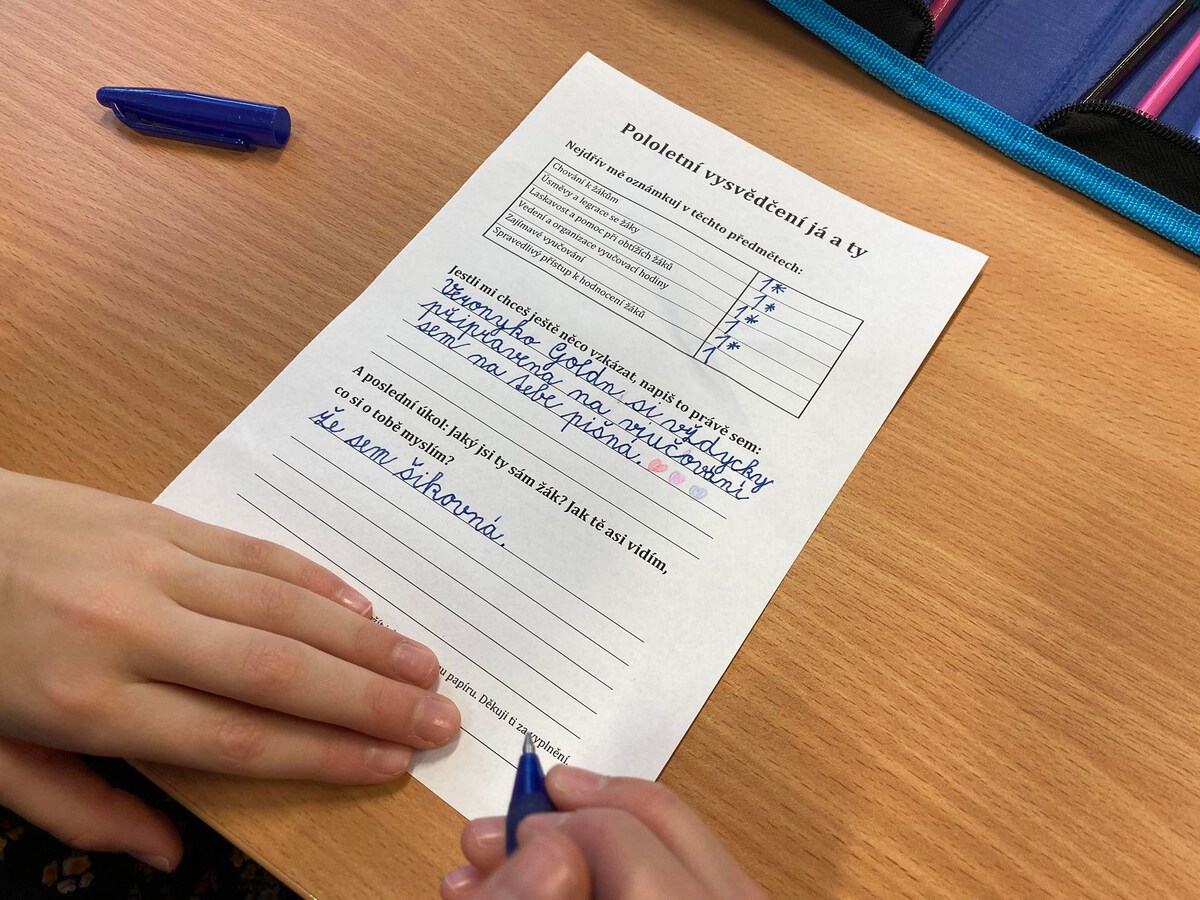 Pololetní vysvědčení já a ty
Nejdřív mě oznámkuj v těchto předmětech:
Chování k žákům 1*
Úsměvy a legrace se žáky 1*
Laskavost a pomoc při obtížích žáků 1*
Vedení a organizace vyučovací hodiny 1
Zajímavé vyučování 1*
Spravedlivý přístup k hodnocení žáků 1
Jestli mi chceš ještě něco vzkázat, napiš to právě sem:
Veronyko Goldn si výdycky
připravena na vručovaní
sem na sebe pišná.
A poslední úkol: Jaký jsi ty sám žák? Jak tě asi vidím,
co si o tobě myslím?
Že sem šikovná.
papíru. Děkuji ti za vyplnění.